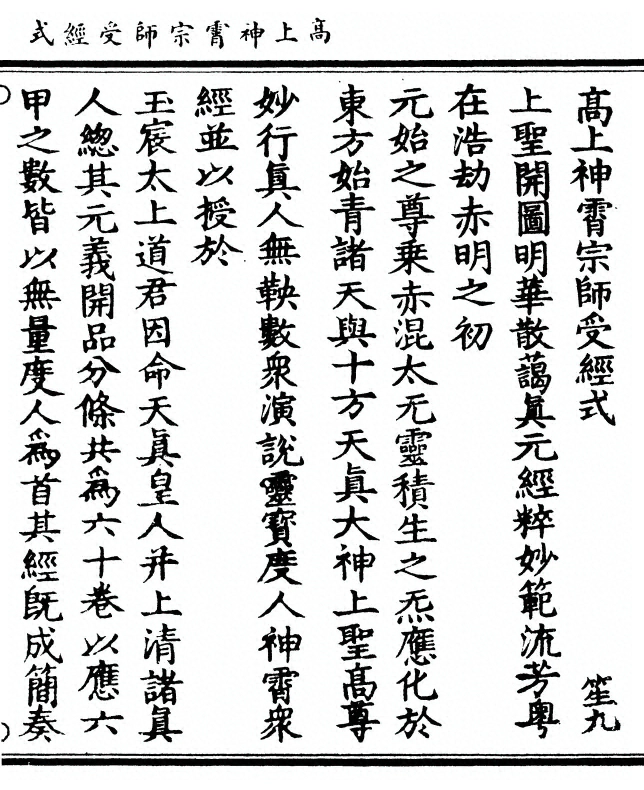 高上神霄宗師受經式
高上神霄宗師受經式 笙九
上聖開圖明華散藹眞元經粹妙範流芳粵
在浩劫赤明之初
元始之尊乗赤混太无靈積生之炁應化於
東方始青諸天與十方天眞大神上聖高尊
妙行眞人無鞅數衆演說靈寶度人神霄衆
經並以授於
玉宸太上道君因命天眞皇人并上清諸眞
人總其元義開品分條共爲六十卷以應六
甲之數皆以無量度人爲首其經旣成簡奏